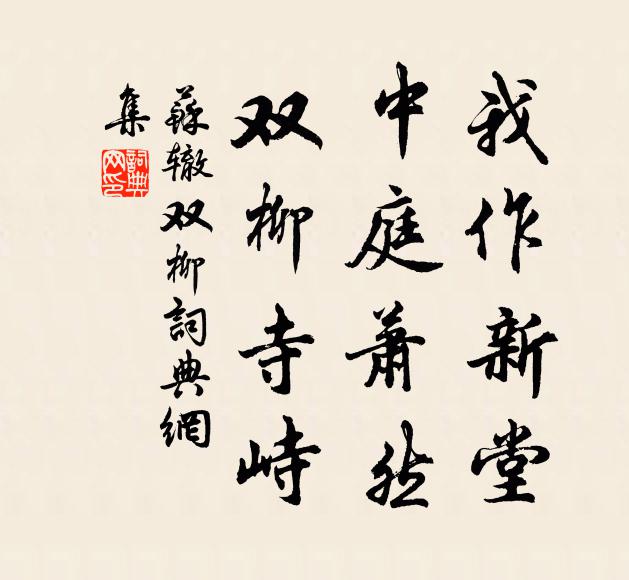 我作新堂
中庭萧然
双柳寺峙
蘇辙双柳詞典網
集
詞典网印